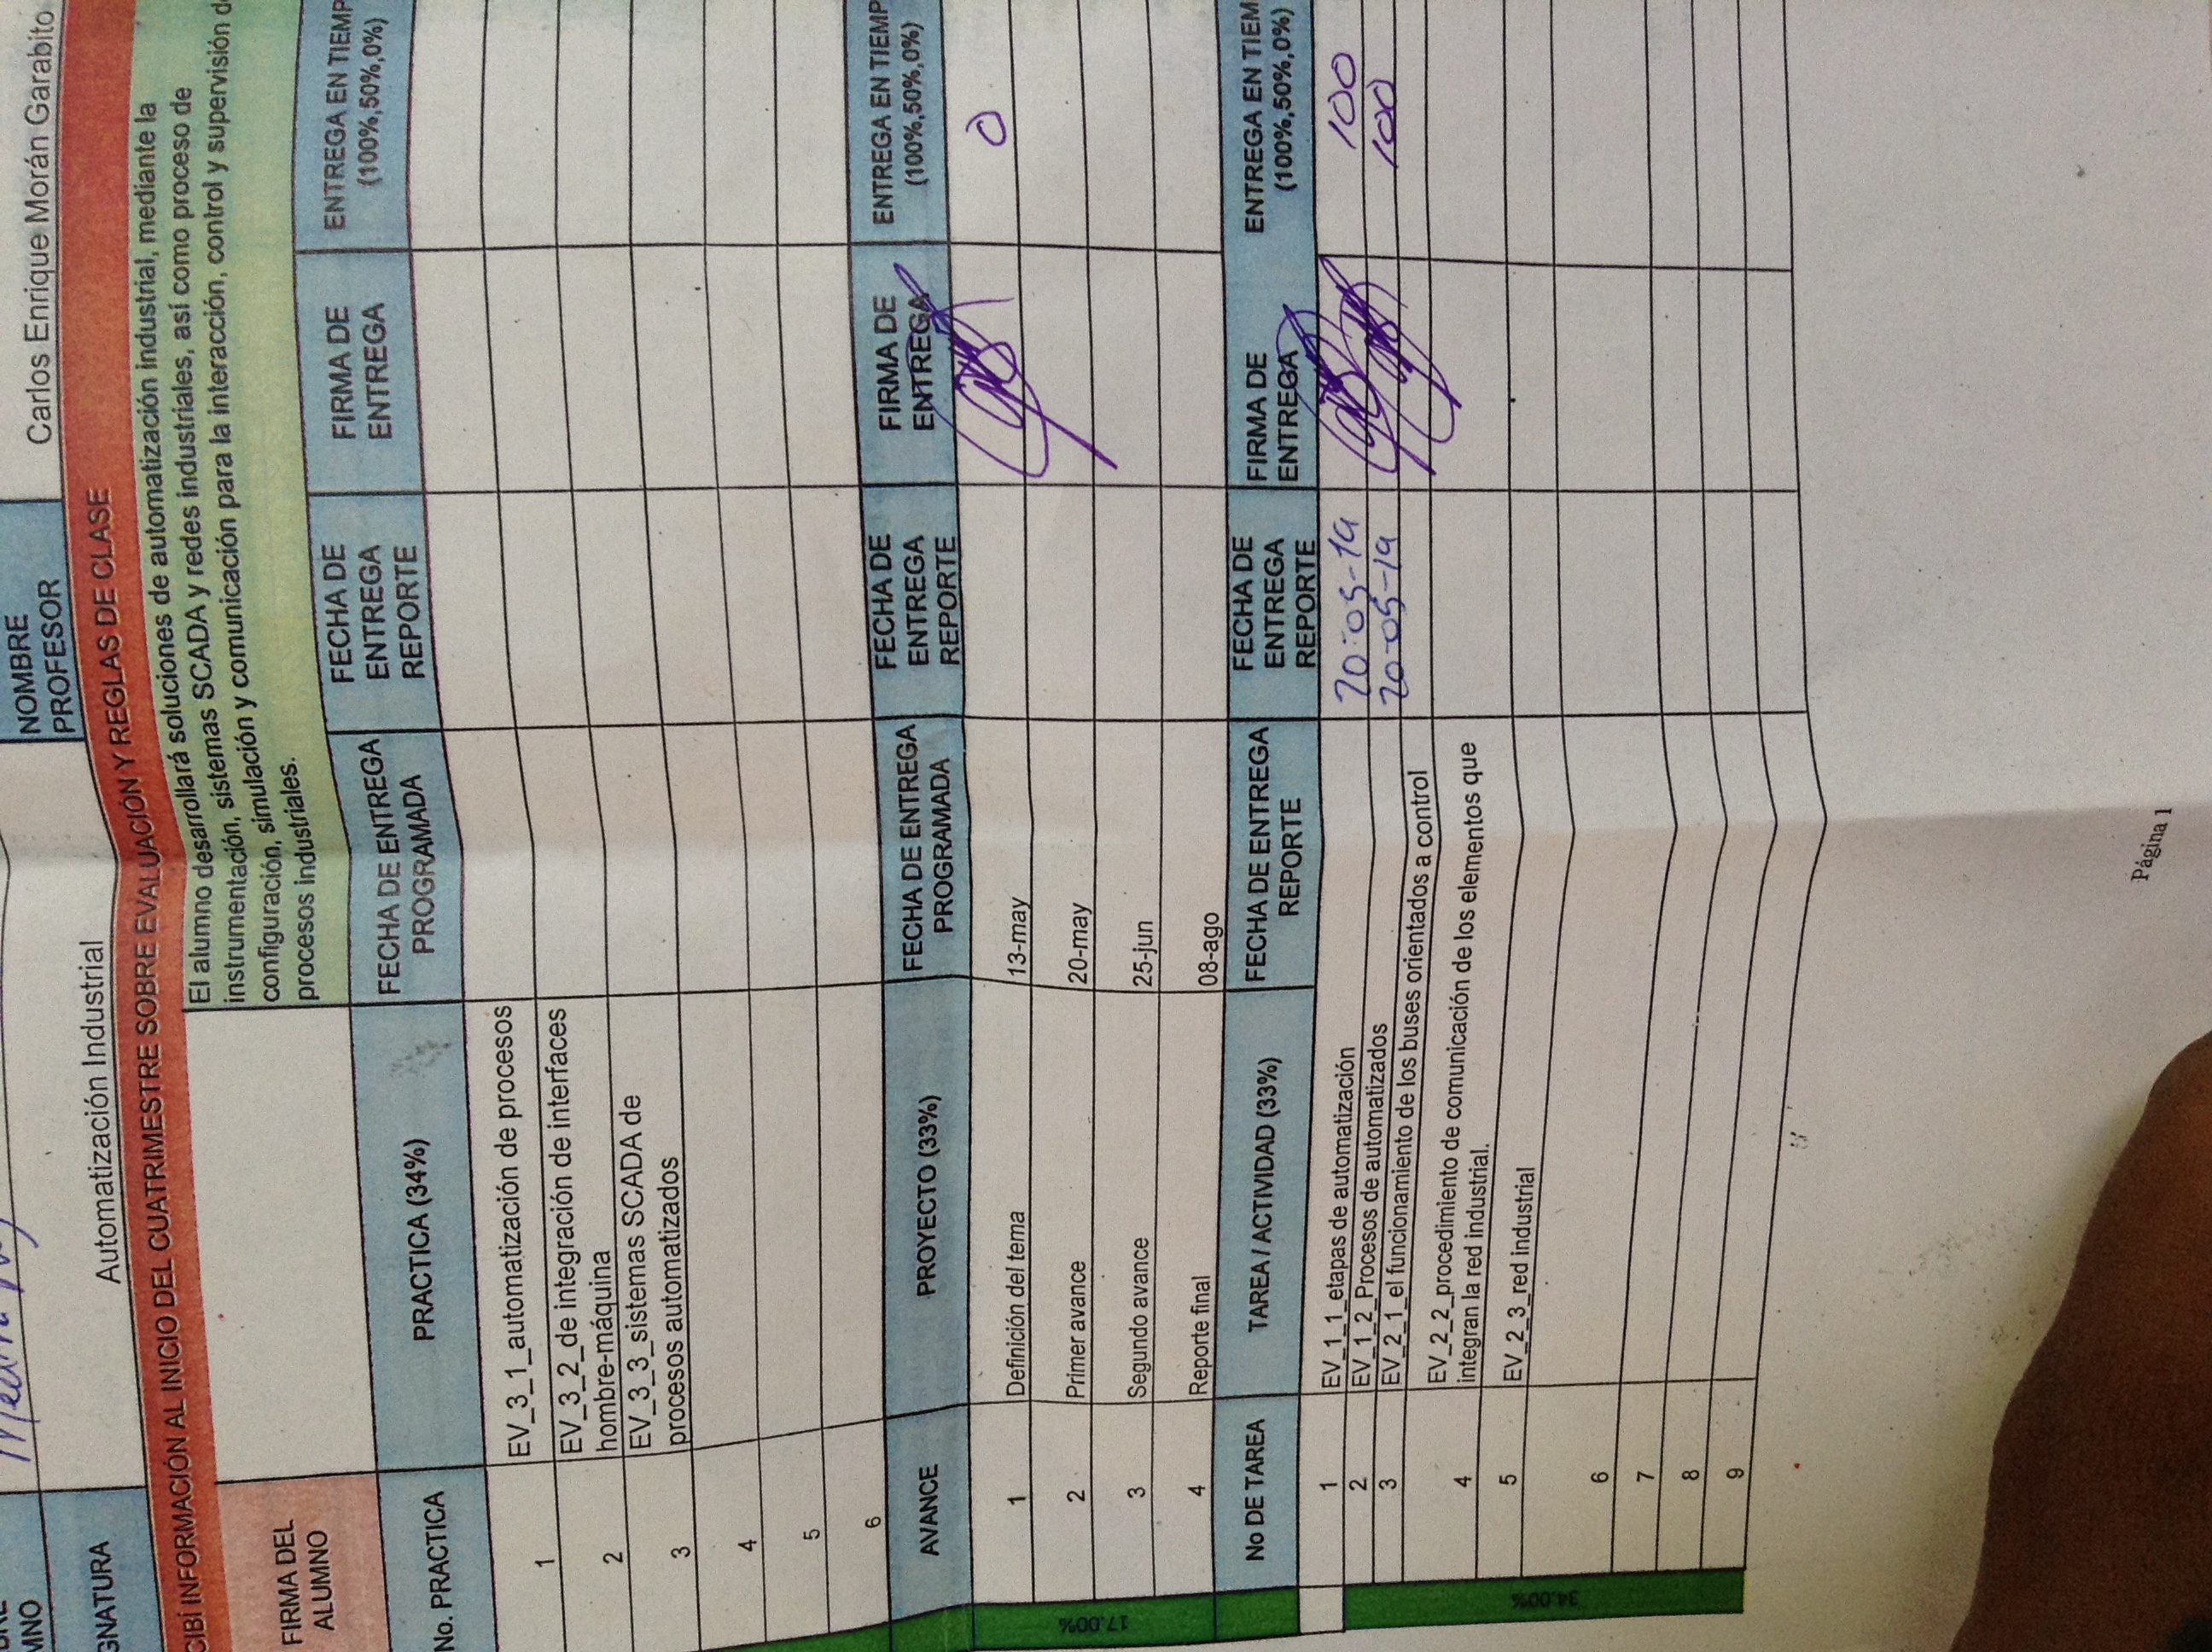 MNO
NOMBRE
PROFESOR
Carlos Enrique Morán Garabito
GNATURA
Automatización Industrial
CIBÍ INFORMACIÓN AL INICIO DEL CUATRIMESTRE SOBRE EVALUACIÓN Y REGLAS DE CLASE
FIRMA DEL
ALUMNO
El alumno desarrollará soluciones de automatización industrial, mediante la
instrumentación, sistemas SCADA y redes industriales, así como proceso de
configuración, simulación y comunicación para la interacción, control y supervisión d
procesos industriales.
No. PRACTICA
PRACTICA (34%)
FECHA DE ENTREGA
PROGRAMADA
FECHA DE
ENTREGA
REPORTE
FIRMA DE
ENTREGA
ENTREGA EN TIEMP
(100%,50%,0%)
1
EV_3_1_automatización de procesos
2
EV_3_2_de integración de interfaces
hombre-máquina
3
EV_3_3_sistemas SCADA de
procesos automatizados
4
5
6
AVANCE
PROYECTO (33%)
FECHA DE ENTREGA
PROGRAMADA
FECHA DE
ENTREGA
REPORTE
FIRMA DE
ENTREGA
ENTREGA EN TIEMP
(100%,50%,0%)
17.00%
1 Definición del tema 13-may 0
2 Primer avance 20-may
3 Segundo avance 25-jun
4 Reporte final 08-ago
No DE TAREA
TAREA / ACTIVIDAD (33%)
FECHA DE ENTREGA
REPORTE
FECHA DE
ENTREGA
REPORTE
FIRMA DE
ENTREGA
ENTREGA EN TIEM
(100%,50%,0%)
34.00%
1 EV_1_1_etapas de automatización 20-05-19 100
2 EV_1_2_Procesos de automatizados 20-05-19 100
3 EV_2_1_el funcionamiento de los buses orientados a control
4 EV_2_2_procedimiento de comunicación de los elementos que
integran la red industrial.
5 EV_2_3_red industrial
6
7
8
9
Página 1